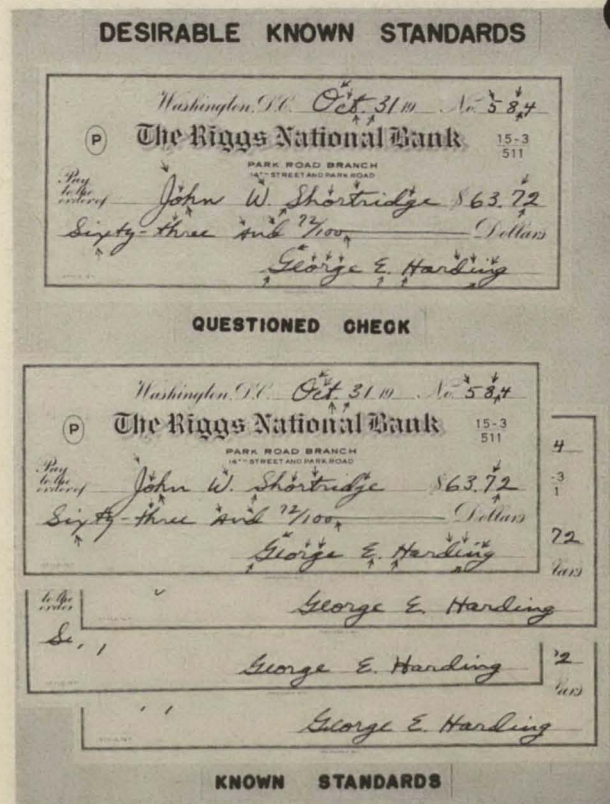 DESIRABLE KNOWN STANDARDS
Washington, D.C. Oct. 31 19 No. 584
P The Riggs National Bank 15-3
511
PARK ROAD BRANCH
14TH STREET AND PARK ROAD
Pay
to the
order of John W. Shortridge $63.72
Sixty-three and 72/100 Dollars
George E. Harding
QUESTIONED CHECK
Washington, D.C. Oct. 31 19 No. 584
P The Riggs National Bank 15-3
511
PARK ROAD BRANCH
14TH STREET AND PARK ROAD
Pay
to the
order of John W. Shortridge $63.72
Sixty-three and 72/100 Dollars
George E. Harding
4
-3
1
72
lars
to the
order
George E. Harding
Se
George E. Harding
72
lars
George E. Harding
KNOWN STANDARDS